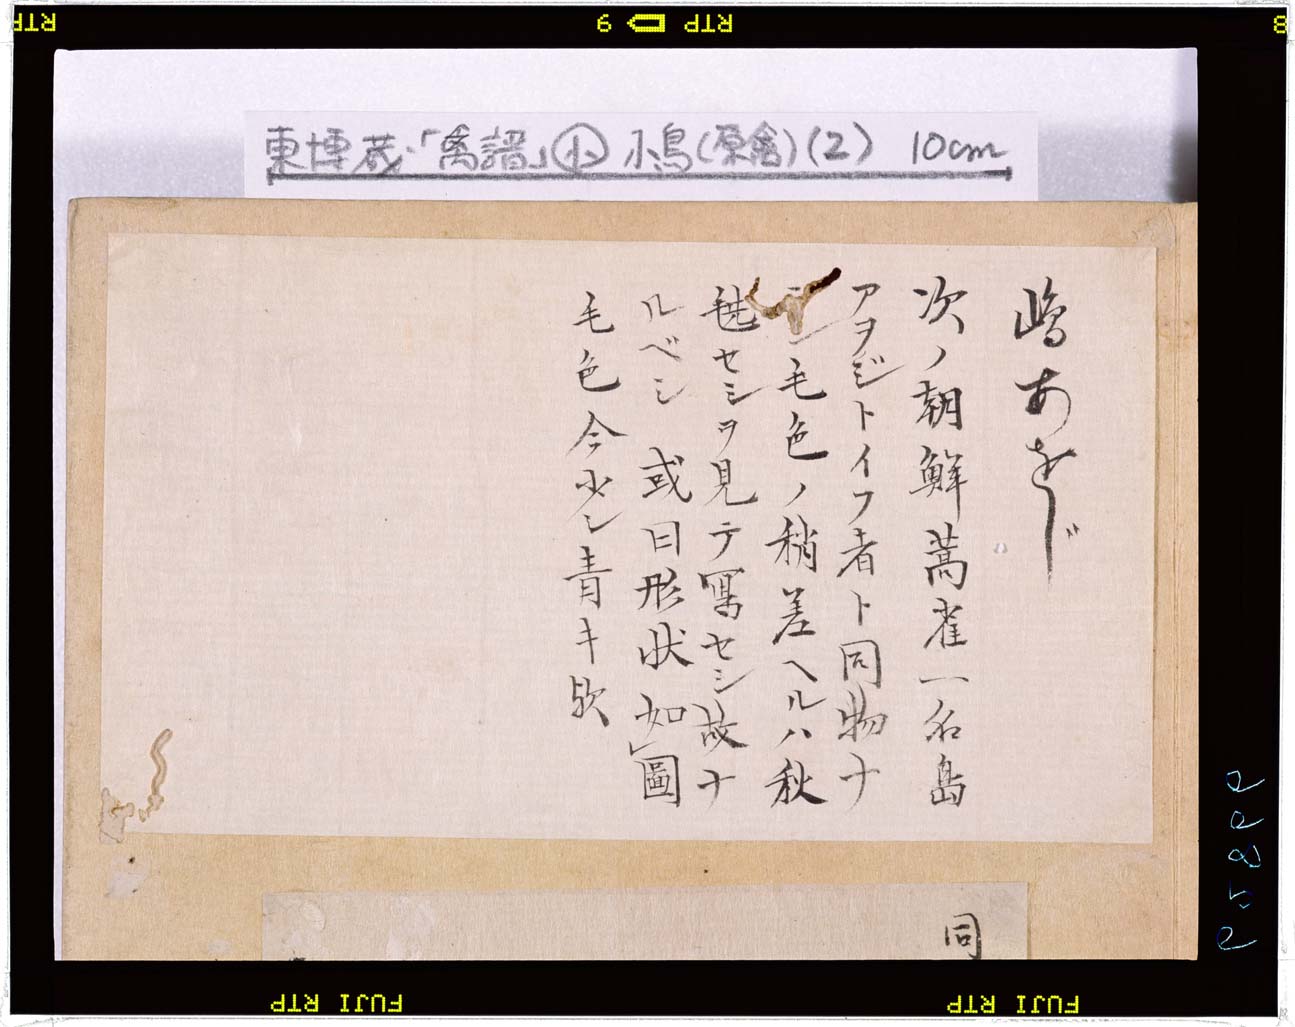 RTP
9 RTP
8
東博蔵・「禽譜」小 小鳥(原舎)(2) 10cm
嶋あをじ
次ノ朝鮮蒿雀一名島
アヲジトイフ者ト同物ナ
毛色ノ稍差ヘルハ秋
毨セシヲ見テ寫セシ故ナ
ルベシ 或曰形状如圖
毛色今少シ青キ歟
同
FUJI RTP
FUJI RTP